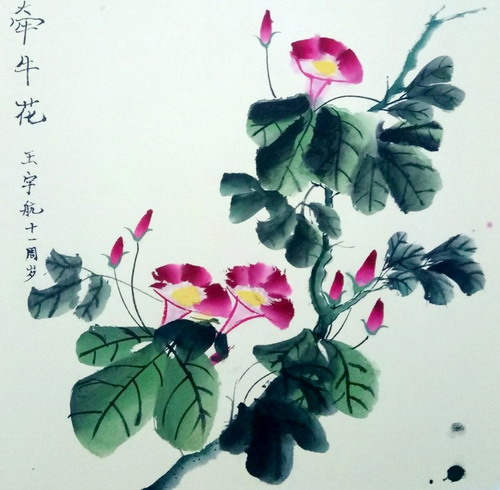 牵牛花
王宇航十一周岁